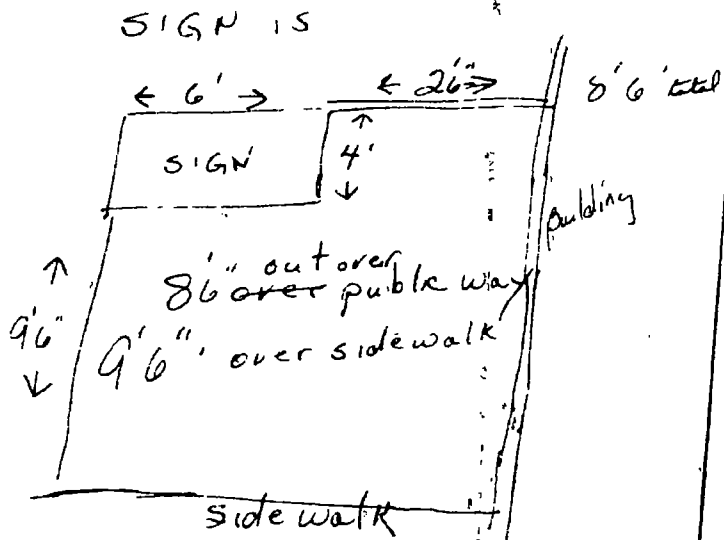 SIGN IS
← 6' → ← 2'6" → 8'6" total
SIGN 4'
building
8'6" out over
over public way
9'6" 9'6" over sidewalk
sidewalk